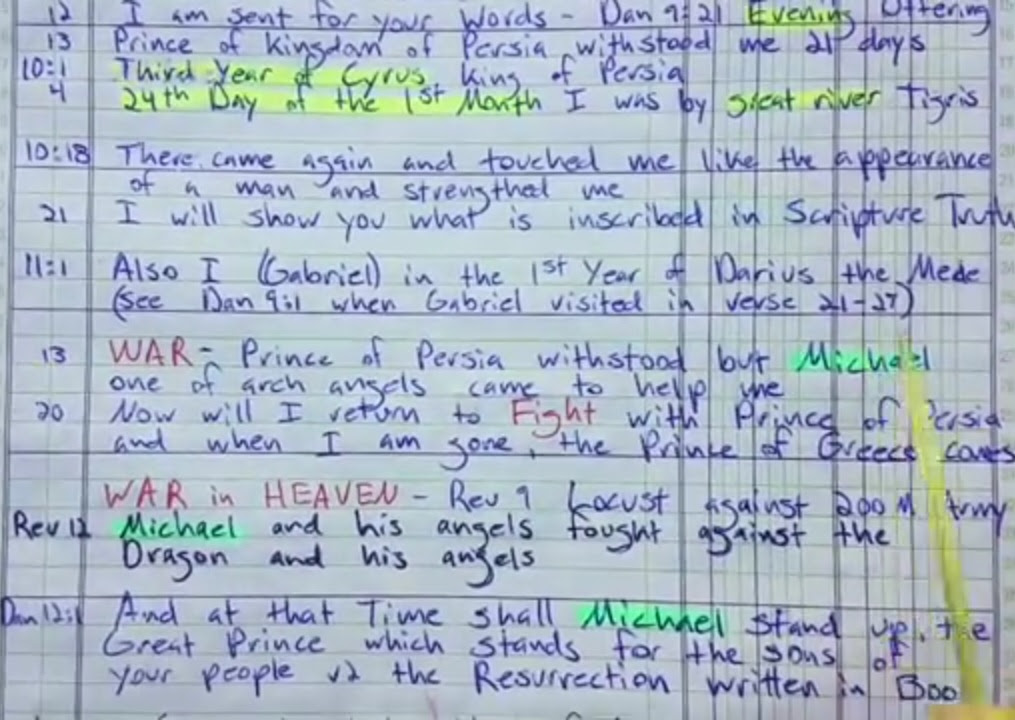 12 I am sent for your words - Dan 9:21 Evening Offering
13 Prince of Kingdom of Persia withstood me 21 days
10:1 Third Year of Cyrus, King of Persia
4 24th Day of the 1st Month I was by great river Tigris
10:18 There came again and touched me like the appearance
of a man and strengthed me
21 I will show you what is inscribed in Scripture Truth
11:1 Also I (Gabriel) in the 1st Year of Darius the Mede
(see Dan 9:1 when Gabriel visited in verse 21-27)
13 WAR - Prince of Persia withstood but Michael
one of arch angels came to help me
20 Now will I return to Fight with Prince of Persia
and when I am gone, the Prince of Greece comes
WAR in HEAVEN - Rev 9 Locust against 200 M Army
Rev 12 Michael and his angels fought against the
Dragon and his angels
Dan 12:1 And at that Time shall Michael stand up, the
Great Prince which stands for the sons of
your people v2 the Resurrection written in Boo